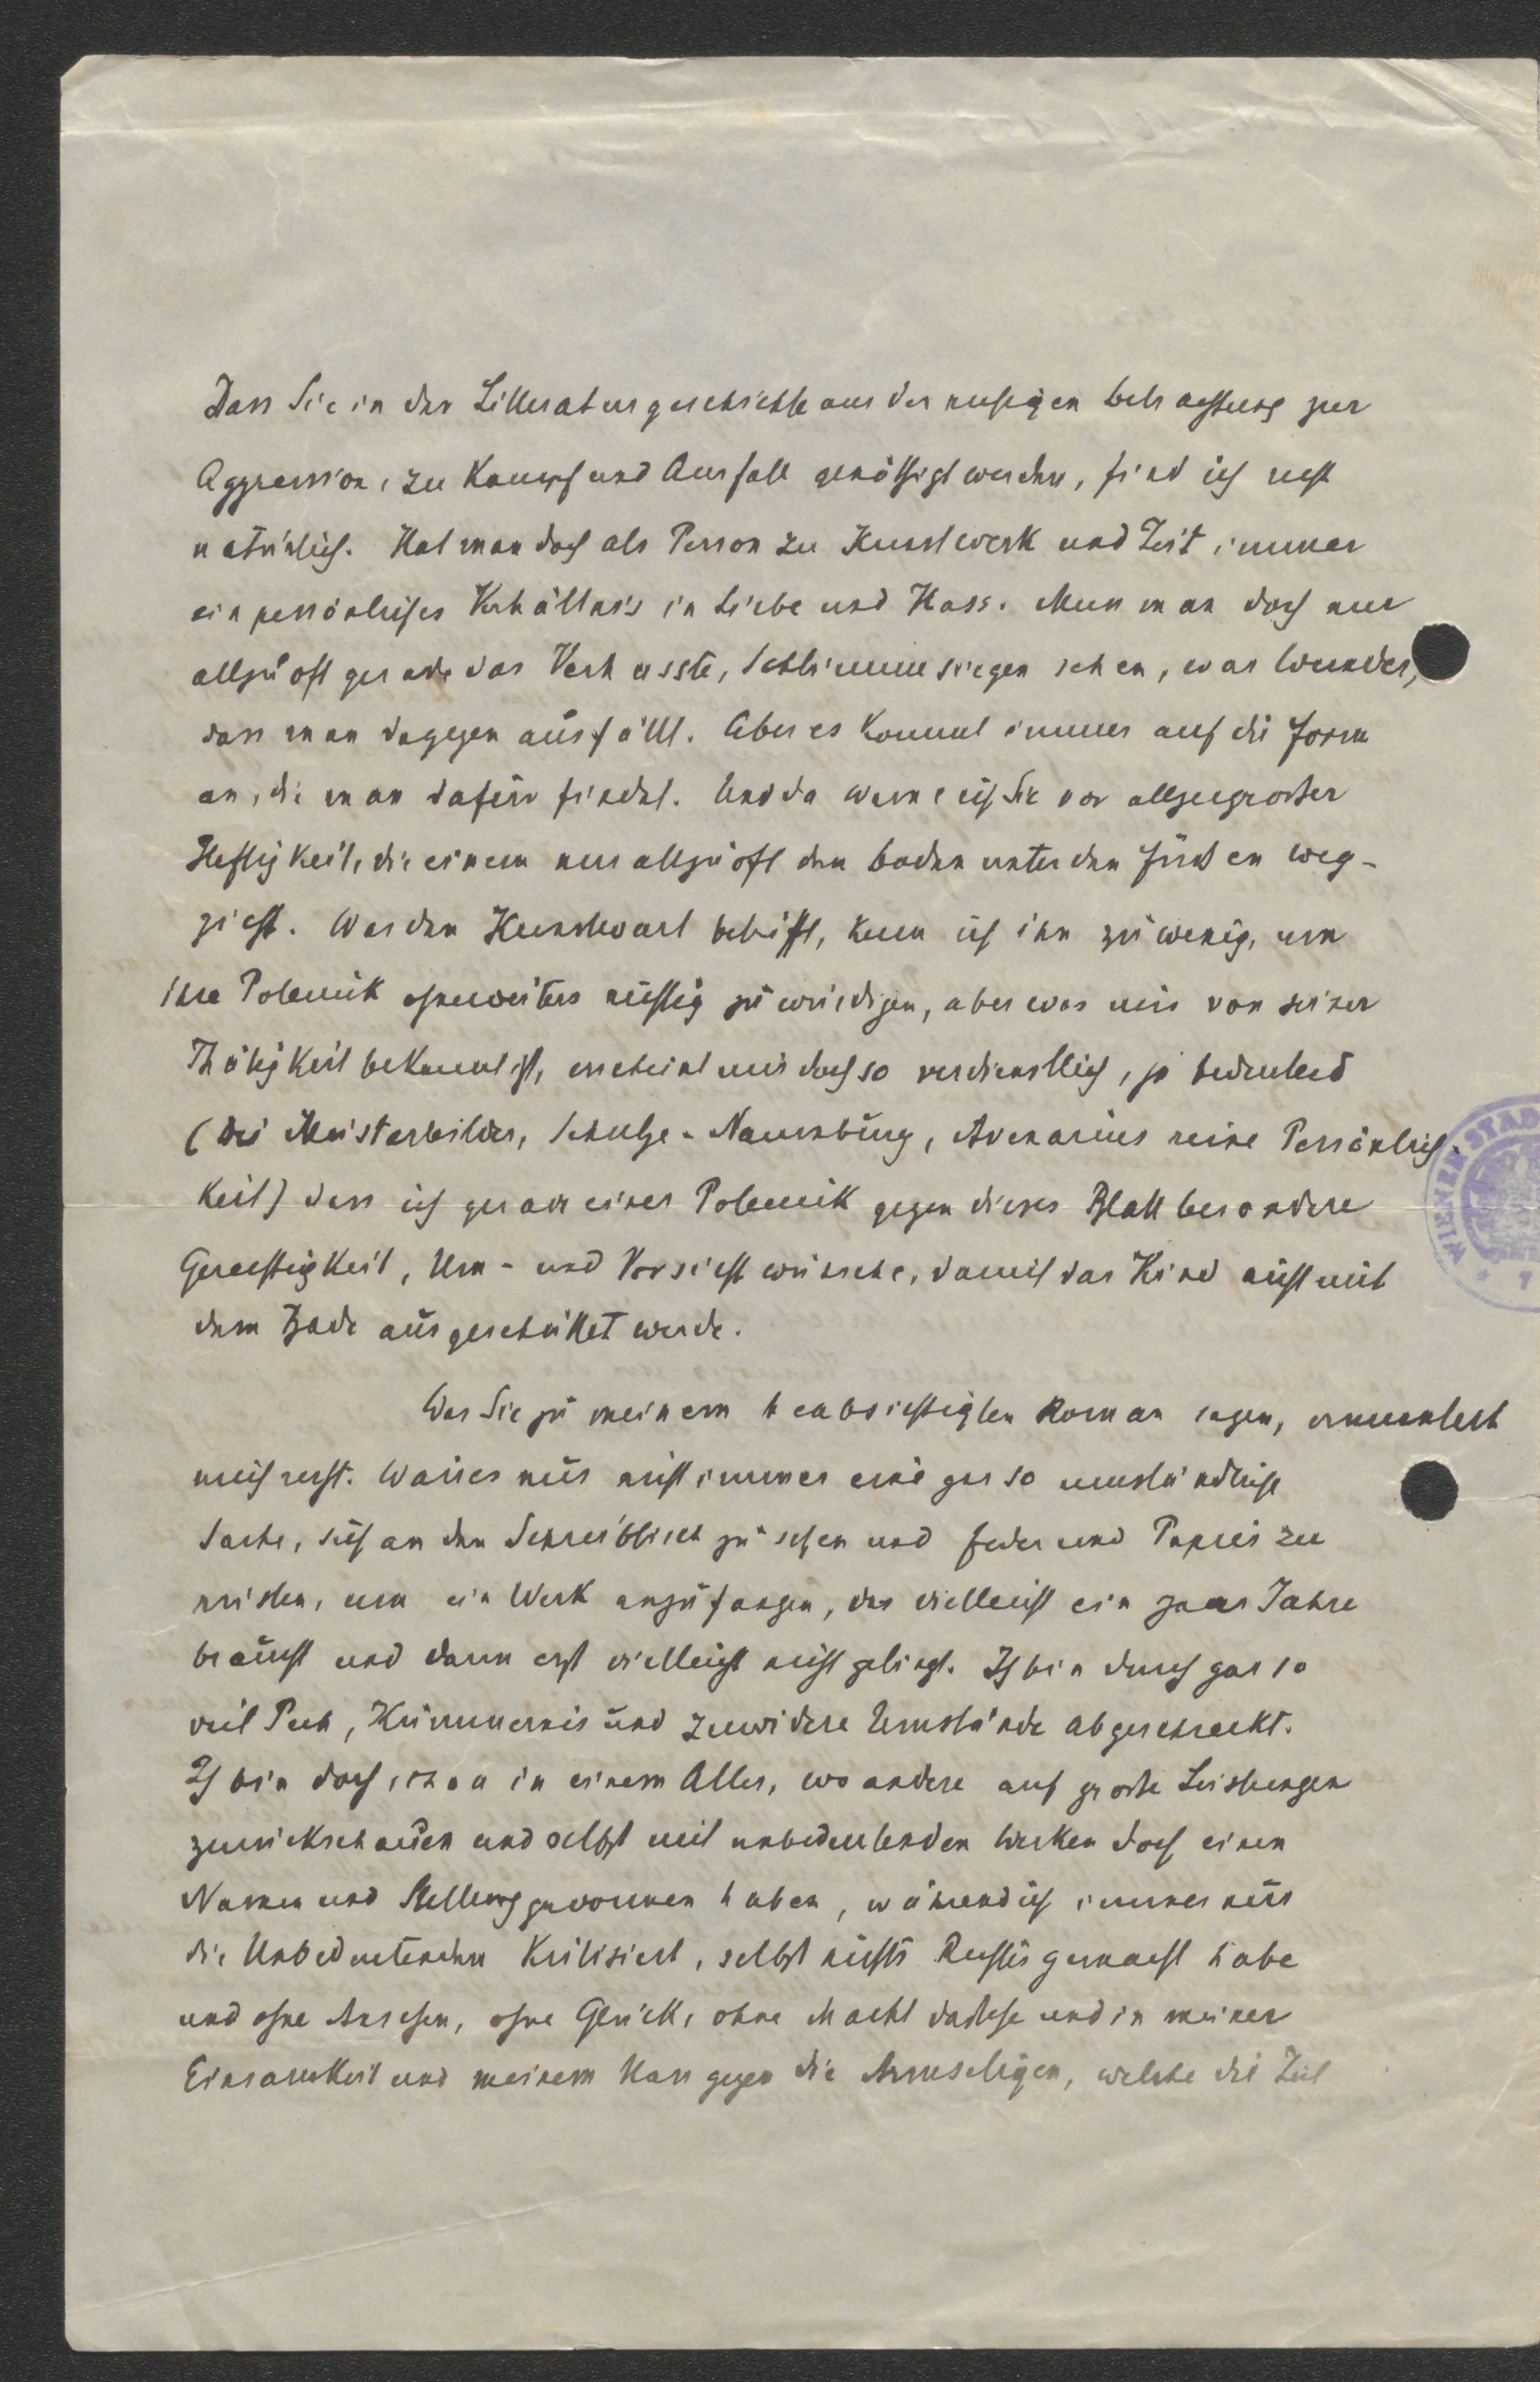 Dass Sie in der Litteraturgeschichte aus der ruhigen Betrachtung zur
Aggression, zu Kampf und Ausfall genöthigt werden, find ich recht
natürlich. Hat man doch als Person zu Kunstwerk und Zeit immer
ein persönliches Verhältnis in Liebe und Hass. Muss man doch nur
allzuoft gerade das Verhasste, Schlimme siegen sehen, was Wunder,
dass man dagegen ausfällt. Aber es kommt immer auf die Form
an, die man dafür findet. Und da warne ich Sie vor allzugrosser
Heftigkeit, die einem nur allzuoft den Boden unter den Füssen weg-
zieht. Was den Kunstwart betrifft, kenn ich ihn zu wenig, um
ihre Polemik ohneweiters richtig zu würdigen, aber was mir von seiner
Thätigkeit bekannt ist, erscheint mir doch so verdienstlich, ja bedeutend
(die Meisterbilder, Schulze-Naumburg, Avenarius seine Persönlich-
keit) dass ich gerade einer Polemik gegen dieses Blatt besondere
Gerechtigkeit, Um- und Vorsicht wünsche, damit das Kind nicht mit
dem Bade ausgeschüttet werde.
Was Sie zu meinem beabsichtigten Roman sagen, ermuntert
mich recht. Wäre es nur nicht immer eine gar so umständliche
Sache, sich an den Schreibtisch zu setzen und Feder und Papier zu
rüsten, um ein Werk anzufangen, das vielleicht ein paar Jahre
braucht und dann erst vielleicht nicht gelingt. Ich bin durch gar so
viel Pech, Kümmernis und zuwidere Umstände abgeschreckt.
Ich bin doch schon in einem Alter, wo andere auf grosse Leistungen
zurückschauen und selbst mit unbedeutenden Werken doch einen
Namen und Stellung gewonnen haben, während ich immer nur
die Unbedeutenden kritisiert, selbst nichts Rechtes gemacht habe
und ohne Ansehen, ohne Glück, ohne Macht dastehe und in meiner
Einsamkeit und meinem Hass gegen die Armseligen, welche die Zeit
WIENER STAD